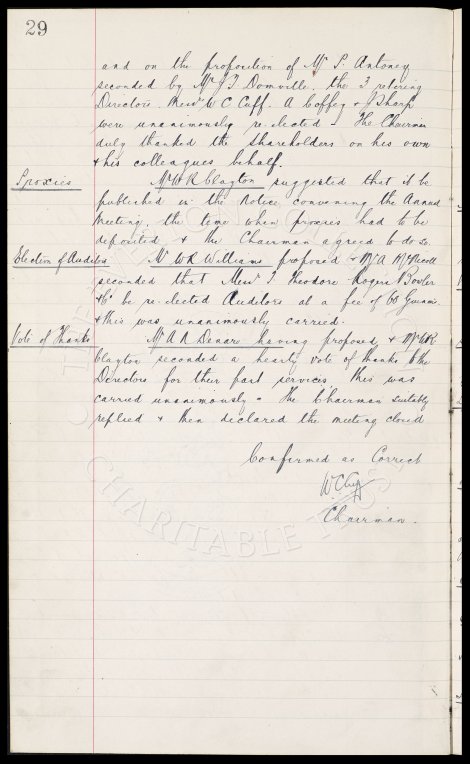 29
and on the proposition of Mr S. Antoney
seconded by Mr J T Domville, the 3 retiring
Directors. Messrs W C Cuff. A Coffey & J Sharp
were unanimously re-elected - The Chairman
duly thanked the Shareholders on his own
& his colleagues behalf.
Proxies Mr W R Clayton suggested that it be
published in the Notice convening the Annual
Meeting, the time when proxies had to be
deposited & the Chairman agreed to do so.
Election of Auditors Mr W R Williams proposed & Mr A
seconded that Messrs Theodore Rogers Bowler
& Co be re-elected Auditors at a fee of 60 Guineas
& this was unanimously carried.
Vote of Thanks Mr A R Denaro having proposed, & Mr W R
Clayton seconded a hearty vote of thanks to the
Directors for their past services this was
carried unanimously - The Chairman suitably
replied & then declared the meeting closed
Confirmed as Correct
W. C. Cuff
Chairman.
CHARITABLE